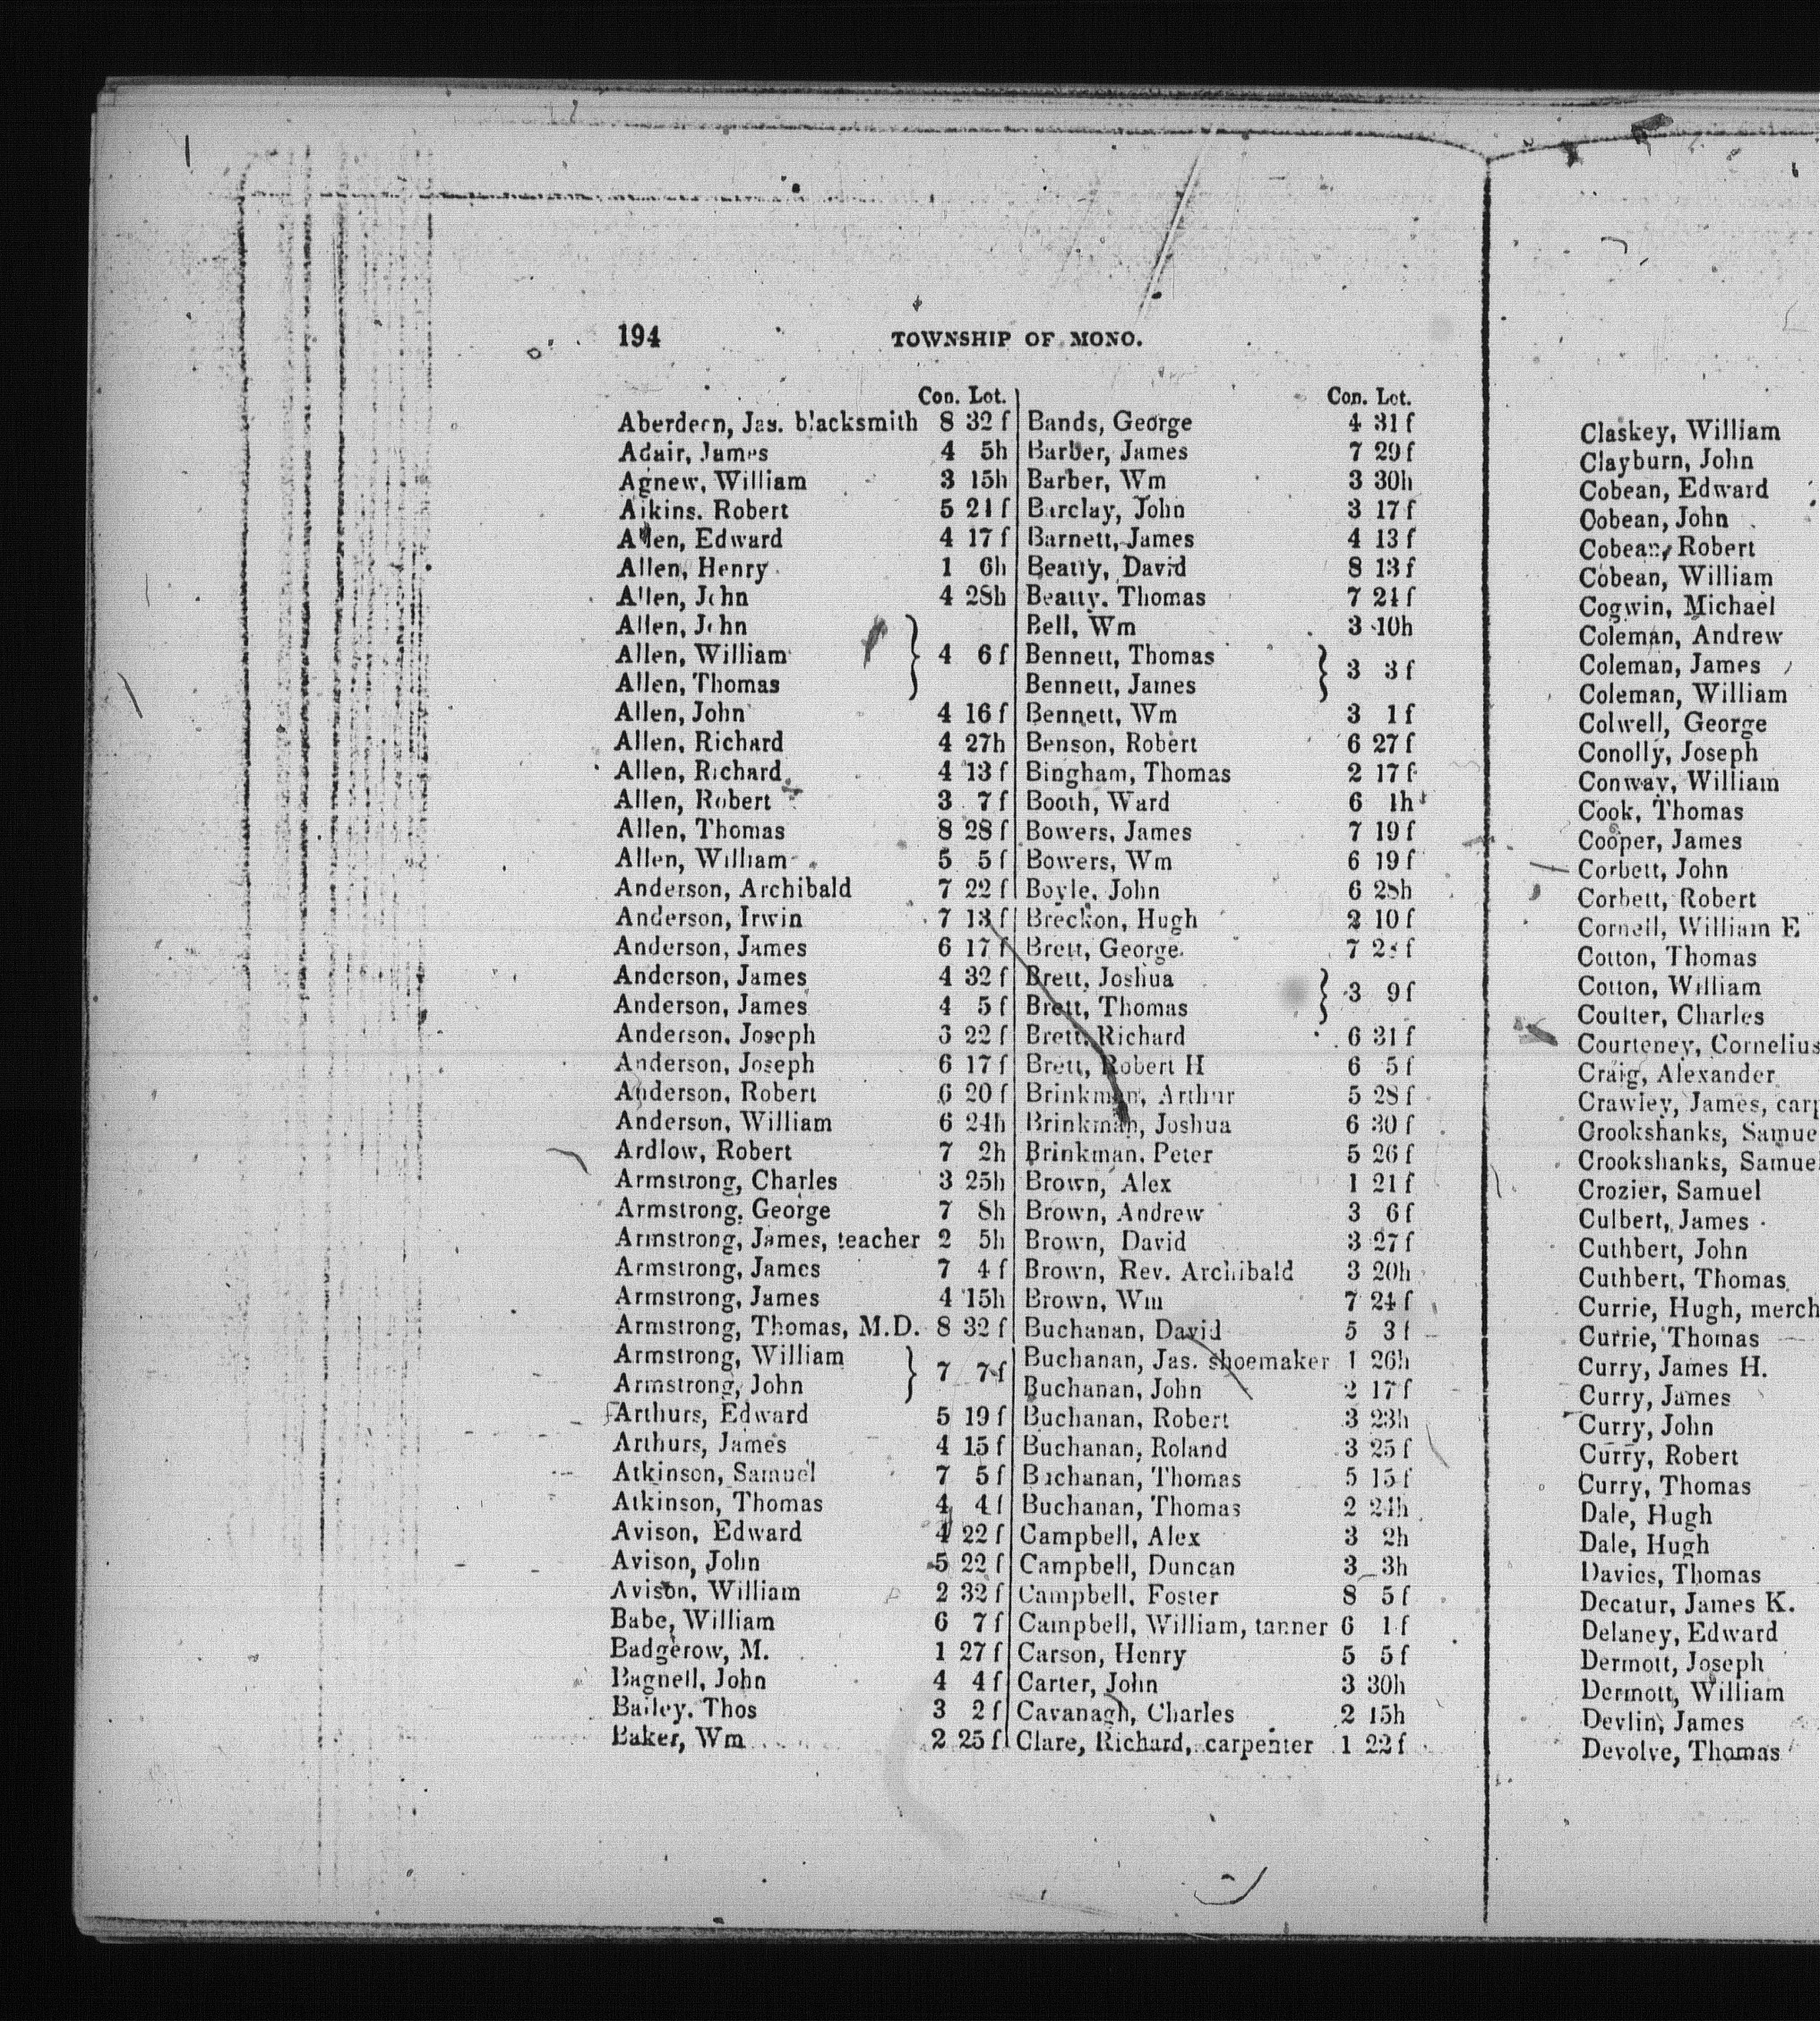 194 TOWNSHIP OF MONO.
Con. Lot.
Aberdeen, Jas. blacksmith 8 32 f
Adair, James 4 5h
Agnew, William 3 15h
Aikins. Robert 5 21 f
Allen, Edward 4 17 f
Allen, Henry 1 6h
Allen, John 4 28h
Allen, John
Allen, William } 4 6 f
Allen, Thomas
Allen, John 4 16 f
Allen, Richard 4 27h
Allen, Richard 4 13 f
Allen, Robert 3 7 f
Allen, Thomas 8 28 f
Allen, William 5 5 f
Anderson, Archibald 7 22 f
Anderson, Irwin 7 13 f
Anderson, James 6 17 f
Anderson, James 4 32 f
Anderson, James 4 5 f
Anderson, Joseph 22 f
Anderson, Joseph 6 17 f
Anderson, Robert 6 20 f
Anderson, William 6 24h
Ardlow, Robert 7 2h
Armstrong, Charles 3 25h
Armstrong, George 7 8h
Armstrong, James, teacher 2 5h
Armstrong, James 7 4 f
Armstrong, James 4 15h
Armstrong, Thomas, M.D. 8 32 f
Armstrong, William } 7 7 f
Armstrong, John
Arthurs, Edward 5 19 f
Arthurs, James 4 15 f
Atkinson, Samuel 7 5 f
Atkinson, Thomas 4 4 f
Avison, Edward 4 22 f
Avison, John 5 22 f
Avison, William 2 32 f
Babe, William 6 7 f
Badgerow, M. 1 27 f
Bagnell, John 4 4 f
Bailey. Thos 3 2 f
Baker, Wm 2 25 f
Con. Lot.
Bands, George 4 31 f
Barber, James 7 29 f
Barber, Wm 3 30h
Barclay, John 3 17 f
Barnett, James 4 13 f
Beatty, David 8 13 f
Beatty. Thomas 7 21 f
Bell, Wm 3 10h
Bennett, Thomas } 3 3 f
Bennett, James
Bennett, Wm 3 1 f
Benson, Robert 6 27 f
Bingham, Thomas 2 17 f
Booth, Ward 6 1h
Bowers, James 7 19 f
Bowers, Wm 6 19 f
Boyle, John 6 28h
Breckon, Hugh 2 10 f
Brett, George 7
Brett, Joshua } 3 9 f
Brett, Thomas
Brett, Richard 6 31 f
Brett, Robert H 6 5 f
Brinkman, Arthur 5 28 f
Brinkman, Joshua 6 30 f
Brinkman, Peter 5 26 f
Brown, Alex 1 21 f
Brown, Andrew 3 6 f
Brown, David 3 27 f
Brown, Rev. Archibald 3 20h
Brown, Wm 7 24 f
Buchanan, David 5 3 f
Buchanan, Jas. shoemaker 1 26h
Buchanan, John 2 17 f
Buchanan, Robert 3 23h
Buchanan, Roland 3 25 f
Buchanan, Thomas 5 15 f
Buchanan, Thomas 2 24h
Campbell, Alex 3 2h
Campbell, Duncan 3 3h
Campbell, Foster 8 5 f
Campbell, William, tanner 6 1 f
Carson, Henry 5 5 f
Carter, John 3 30h
Cavanagh, Charles 2 15h
Clare, Richard, carpenter 1 22 f
Claskey, William
Clayburn, John
Cobean, Edward
Cobean, John
Cobean, Robert
Cobean, William
Cogwin, Michael
Coleman, Andrew
Coleman, James
Coleman, William
Colwell, George
Conolly, Joseph
Conway, William
Cook, Thomas
Cooper, James
Corbett, John
Corbett, Robert
Cornell, William E
Cotton, Thomas
Cotton, William
Coulter, Charles
Courteney, Cornelius
Craig, Alexander
Crawley, James, carp
Crookshanks, Samue
Crookshanks, Samuel
Crozier, Samuel
Culbert, James
Cuthbert, John
Cuthbert, Thomas
Currie, Hugh, merch
Currie, Thomas
Curry, James H.
Curry, James
Curry, John
Curry, Robert
Curry, Thomas
Dale, Hugh
Dale, Hugh
Davies, Thomas
Decatur, James K.
Delaney, Edward
Dermott, Joseph
Dermott, William
Devlin, James
Devolve, Thomas